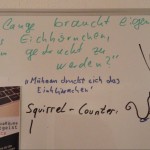 Lange braucht eigen
s Eichhörnchen,
gedruckt zu
werden?"
„Mühsam druckt sich das
Eichhörnchen"
Squirrel-Counter:
I